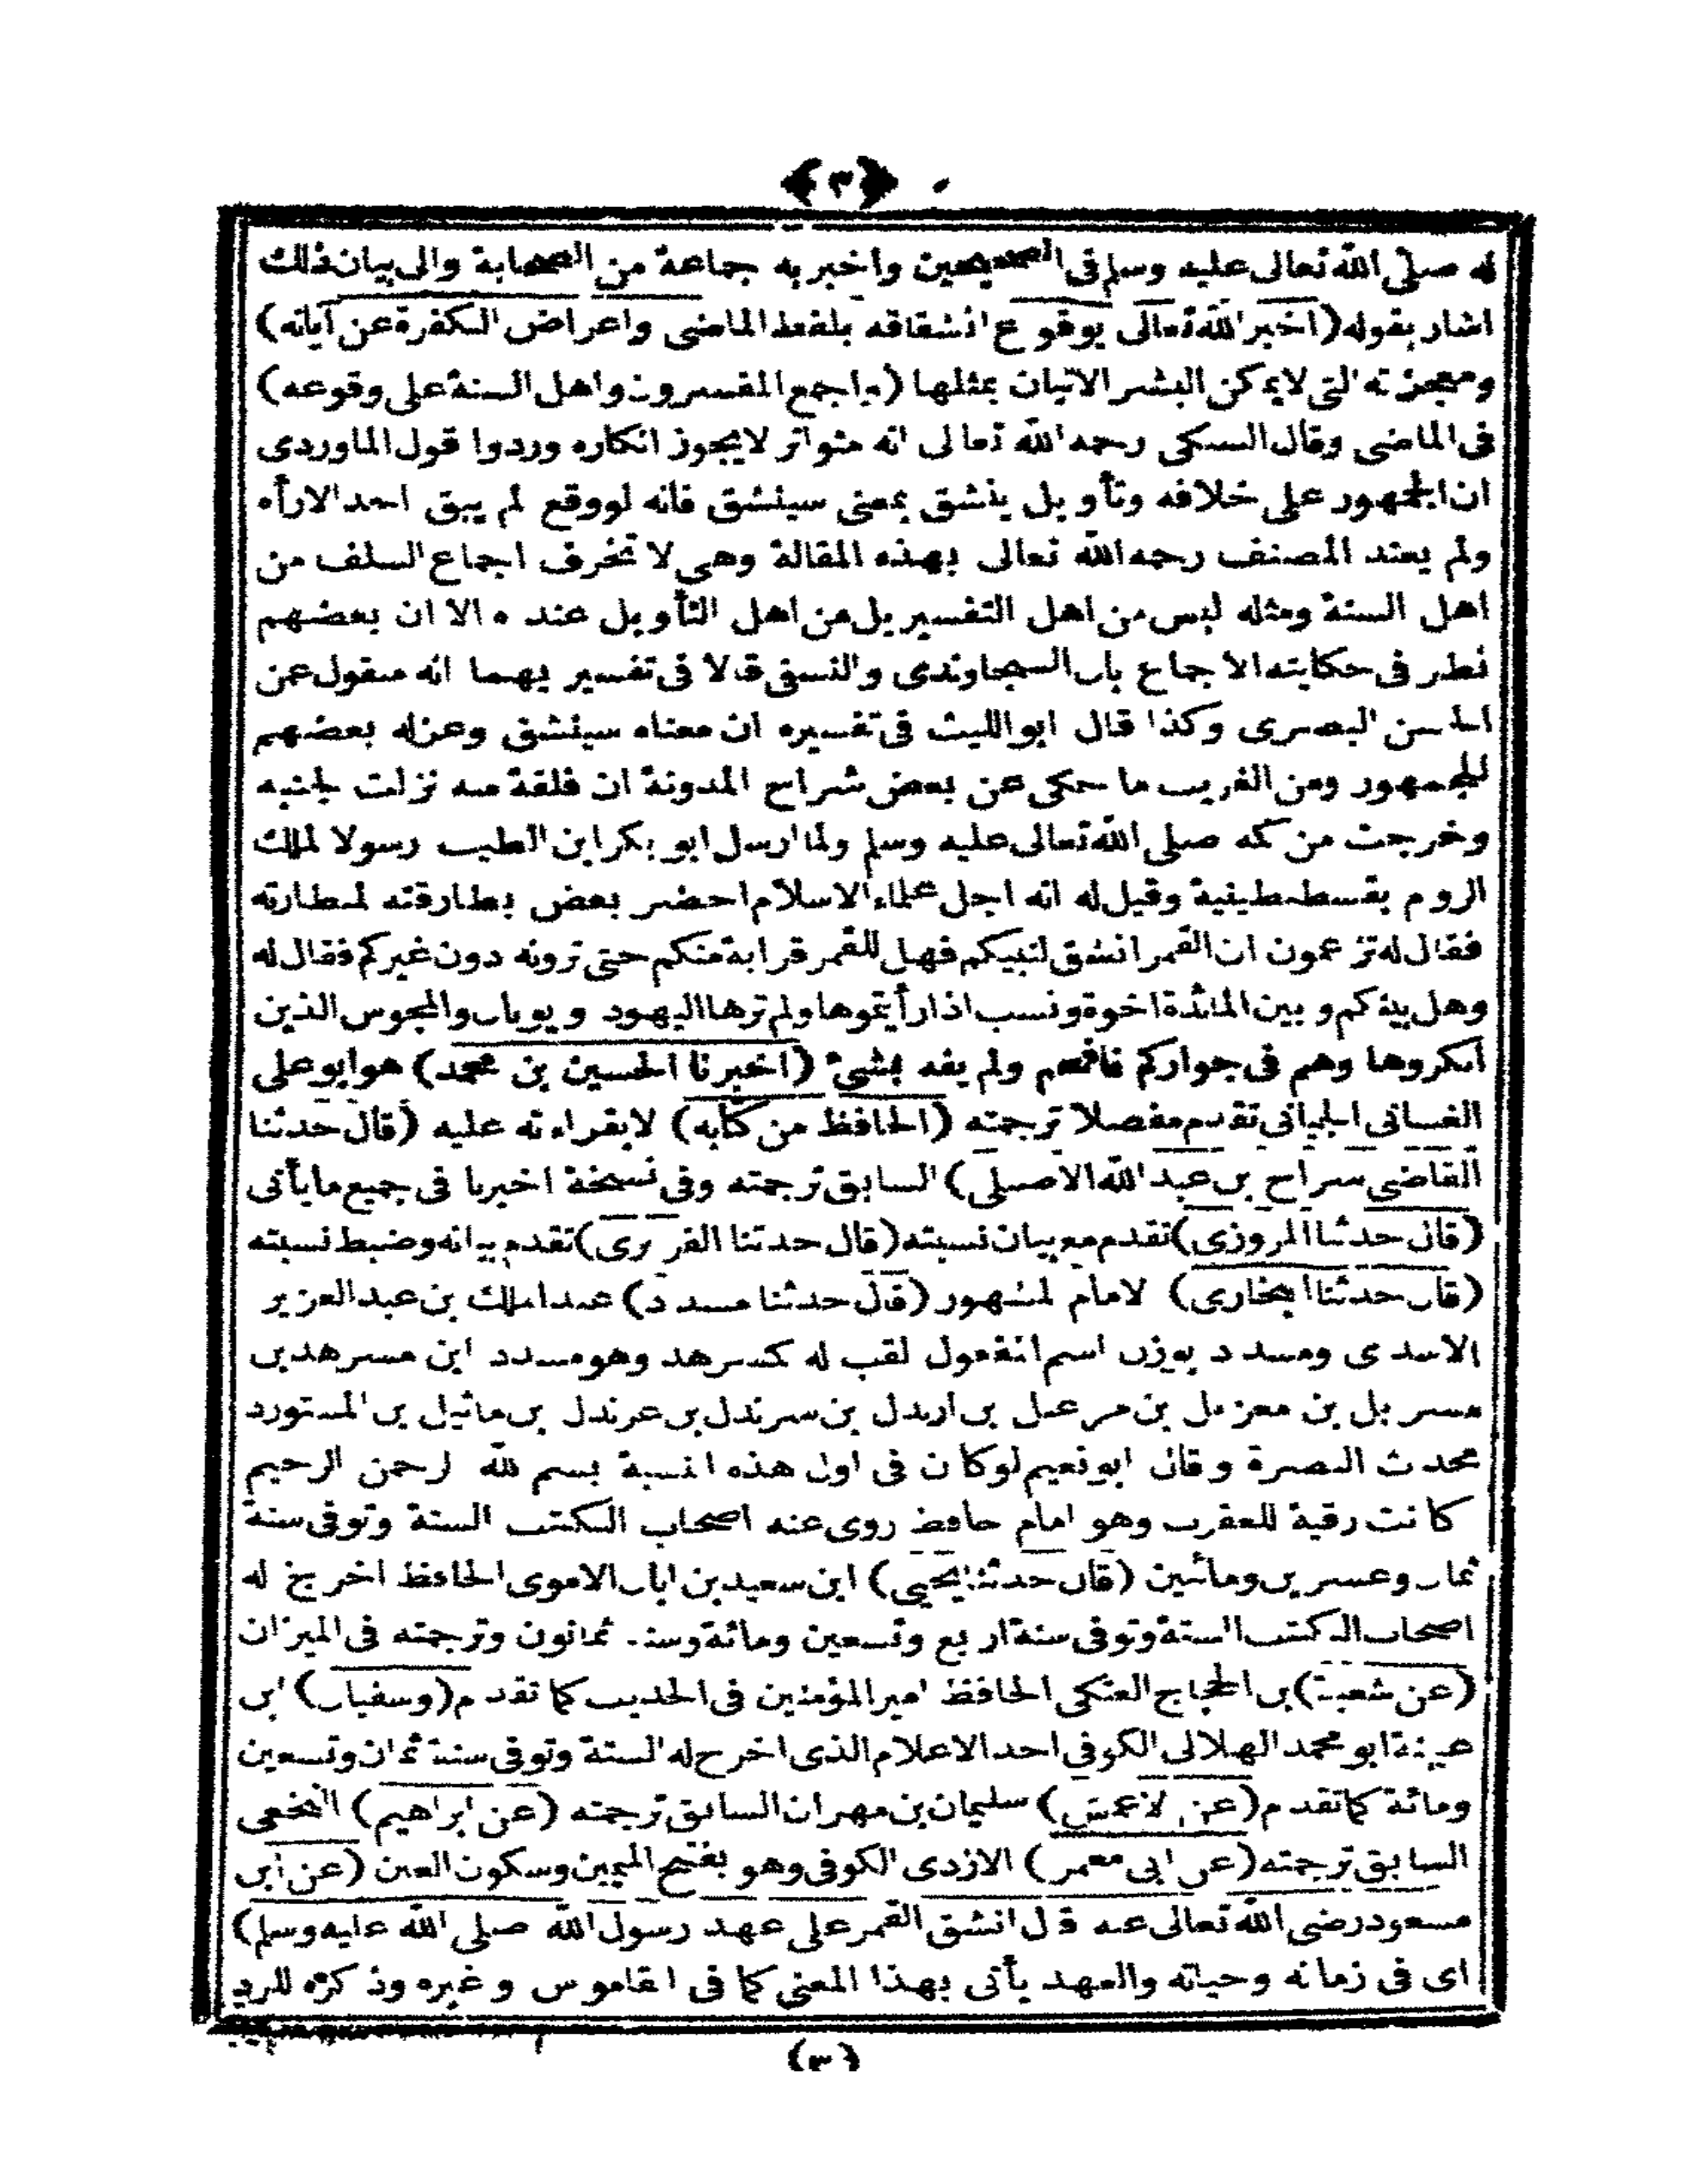 ﴿٣﴾
له صلى الله تعالى عليه وسلم فى الصحيحين واخبر به جماعة من الصحابة والى بيان ذلك
اشار بقوله (اخبر الله تعالى بوقوع انشقاقه بلفظ الماضى واعراض الكفرة عن آياته)
ومعجزته التى لايمكن البشر الاتيان بمثلها (واجمع المفسرون واهل السنة على وقوعه)
فى الماضى وقال السبكى رحمه الله تعالى انه متواتر لايجوز انكاره وردوا قول الماوردى
ان الجمهور على خلافه وتأويل ينشق بمعنى سينشق فانه لو وقع لم يبق احد الارأه
ولم يعتد المصنف رحمه الله تعالى بهذه المقالة وهى لا تخرق اجماع السلف من
اهل السنة ومثله ليس من اهل التفسير بل من اهل التأويل عنده الا ان بعضهم
نظر فى حكايته الاجماع بان السجاوندى والنسفى قالا فى تفسيريهما انه منقول عن
الحسن البصرى وكذا قال ابو الليث فى تفسيره ان معناه سينشق وعزله بعضهم
للجمهور ومن الغريب ما حكى عن بعض شراح المدونة ان فلقة منه نزلت لجنبه
وخرجت من كمه صلى الله تعالى عليه وسلم ولما ارسل ابو بكر ابن الطيب رسولا لملك
الروم بقسطنطينية وقيل له انه اجل علماء الاسلام احضر بعض بطارقته لمناظرته
فقال له تزعمون ان القمر انشق لنبيكم فهل للقمر قرابة منكم حتى ترونه دون غيركم فقال له
وهل بينكم وبين المائدة اخوة ونسب اذ رأيتموها ولم ترها اليهود ويونان والمجوس الذين
انكروها وهم فى جواركم فافحم ولم يفه بشئ (اخبرنا الحسين بن محمد) هو ابو على
الغسانى الجيانى تقدم مفصلا ترجمته (الحافظ من كتابه) لا بقراءته عليه (قال حدثنا
القاضى سراج بن عبد الله الاصيلى) السابق ترجمته وفى نسخة اخبرنا فى جميع مايأتى
(قال حدثنا المروزى) تقدم مع بيان نسبته (قال حدثنا الفربرى) تقدم بيانه وضبط نسبته
(قال حدثنا البخارى) الامام المشهور (قال حدثنا مسدد) عبد الملك بن عبد العزيز
الاسدى ومسدد بوزن اسم المفعول لقب له كمسرهد وهو مسدد ابن مسرهد بن
مسربل بن مغربل بن مرعبل بن ارندل بن سرندل بن عرندل بن ماثيل بن المستورد
محدث البصرة وقال ابو نعيم لو كان فى اول هذه النسبة بسم الله الرحمن الرحيم
كانت رقية للعقرب وهو امام حافظ روى عنه اصحاب الكتب الستة وتوفى سنة
ثمان وعشرين ومائتين (قال حدثنا يحيى) ابن سعيد بن ابان الاموى الحافظ اخرج له
اصحاب الكتب الستة وتوفى سنة اربع وتسعين ومائة وسنه ثمانون وترجمته فى الميزان
(عن شعبة) بن الحجاج العتكى الحافظ امير المؤمنين فى الحديث كما تقدم (وسفيان) ابن
عيينة ابو محمد الهلالى الكوفى احد الاعلام الذى اخرج له الستة وتوفى سنة ثمان وتسعين
ومائة كما تقدم (عن الاعمش) سليمان بن مهران السابق ترجمته (عن ابراهيم) النخعى
السابق ترجمته (عن ابى معمر) الازدى الكوفى وهو بفتح الميمين وسكون العين (عن ابن
مسعود رضى الله تعالى عنه قال انشق القمر على عهد رسول الله صلى الله عليه وسلم)
اى فى زمانه وحياته والعهد يأتى بهذا المعنى كما فى القاموس وغيره وذكره للرد
(٣)